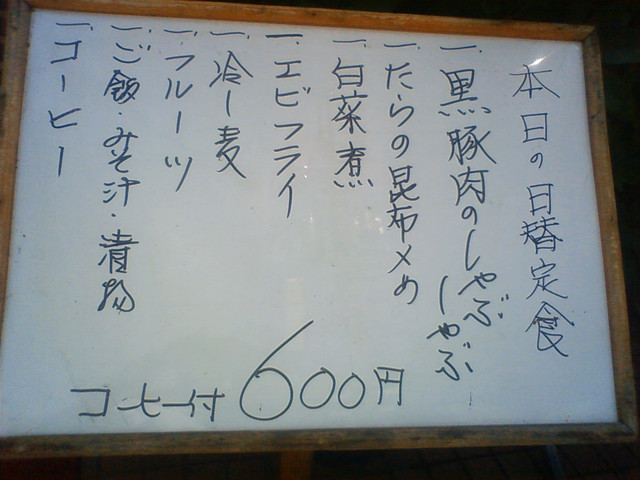 本日の日替定食
一.黒豚肉のしゃぶしゃぶ
一.たらの昆布〆め
一.白菜煮
一.エビフライ
一.冷し麦
一.フルーツ
一.ご飯・みそ汁・漬物
一.コーヒー
コーヒー付600円